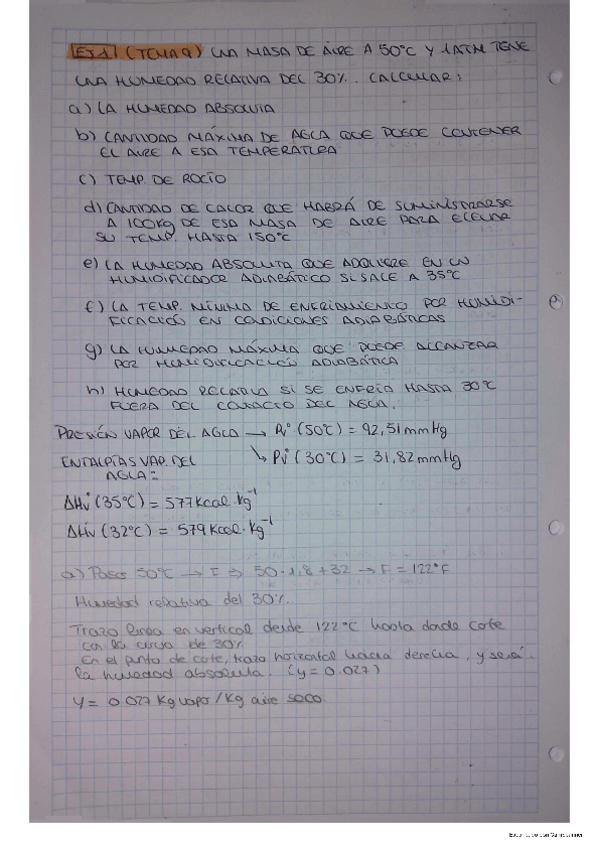 EJ.1 (TEMA 9) UNA MASA DE AIRE A 50°C Y 1 ATM TIENE
UNA HUMEDAD RELATIVA DEL 30%. CALCULAR:
a) LA HUMEDAD ABSOLUTA
b) CANTIDAD MÁXIMA DE AGUA QUE PUEDE CONTENER
EL AIRE A ESA TEMPERATURA
c) TEMP. DE ROCÍO
d) CANTIDAD DE CALOR QUE HABRÁ DE SUMINISTRARSE
A 100Kg DE ESA MASA DE AIRE PARA ELEVAR
SU TEMP. HASTA 150°C
e) LA HUMEDAD ABSOLUTA QUE ADQUIERE EN UN
HUMIDIFICADOR ADIABÁTICO SI SALE A 35°C
f) LA TEMP. MÍNIMA DE ENFRIAMIENTO POR HUMIDI-
FICACIÓN EN CONDICIONES ADIABÁTICAS
g) LA HUMEDAD MÁXIMA QUE PUEDE ALCANZAR
POR HUMIDIFICACIÓN ADIABÁTICA
h) HUMEDAD RELATIVA SI SE ENFRÍA HASTA 30°C
FUERA DEL CONTACTO DEL AGUA.
PRESIÓN VAPOR DEL AGUA → Pv° (50°C) = 92,51 mmHg
ENTALPÍAS VAP. DEL ↳ Pv° (30°C) = 31,82 mmHg
AGUA:
ΔHv° (35°C) = 577 Kcal·Kg⁻¹
ΔHv° (32°C) = 579 Kcal·Kg⁻¹
a) Paso 50°C → F ⇒ 50·1,8+32 → F = 122°F
Humedad relativa del 30%.
Trazo línea en vertical desde 122°C hasta donde corte
con la curva de 30%
En el punto de corte, trazo horizontal hacia derecha, y será
la humedad absoluta. (y = 0.027)
Y = 0.027 Kg vapor / Kg aire seco.